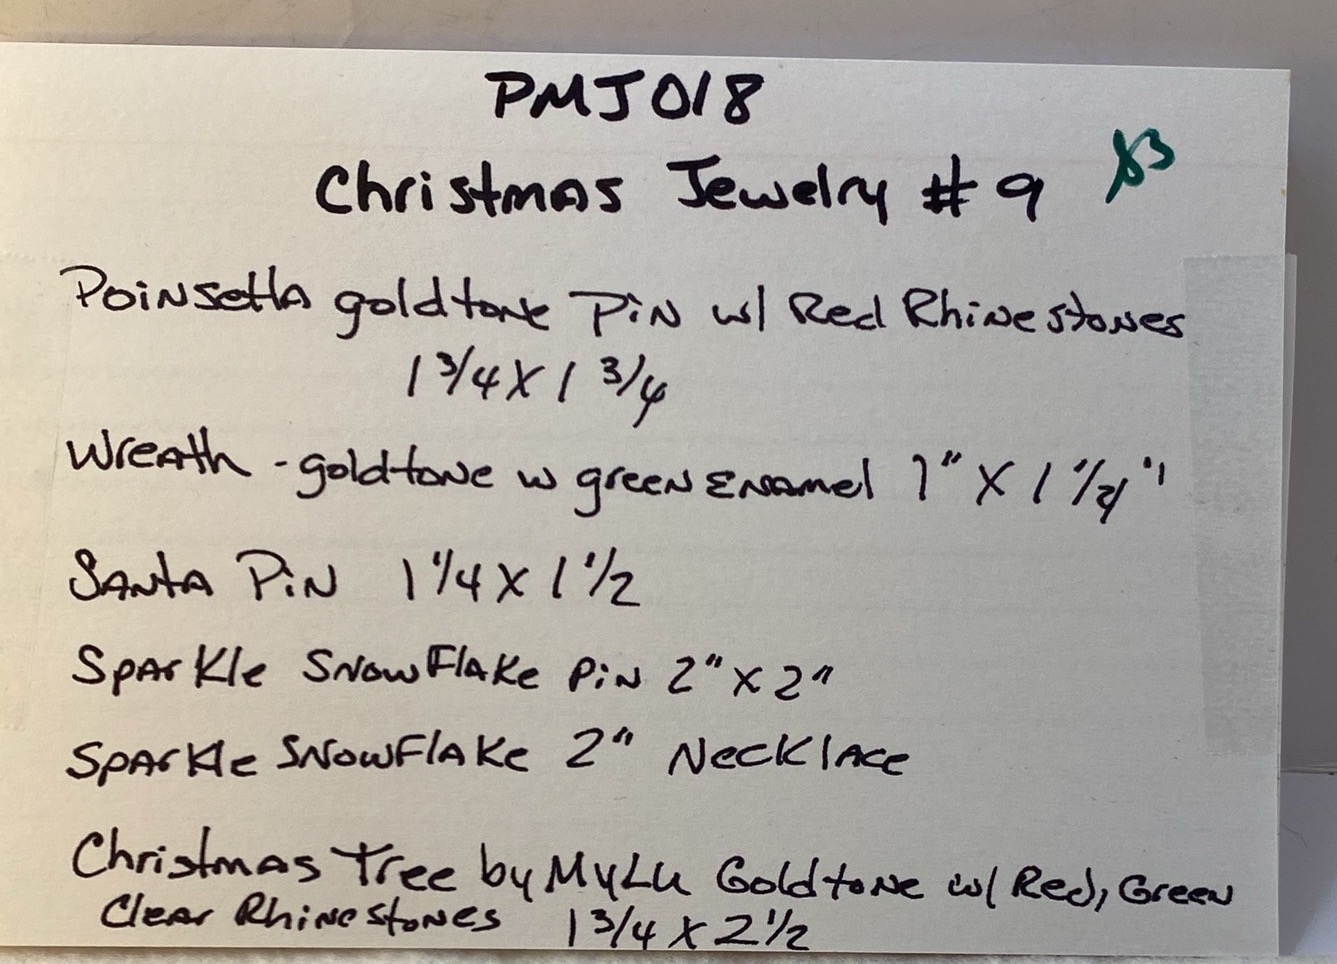 PMJ018
Christmas Jewelry # 9
$3
Poinsetta goldtone Pin w/ Red Rhinestones
1 3/4 X 1 3/4
Wreath - goldtone w green Enamel 1" X 1 1/4"
Santa Pin 1 1/4 X 1 1/2
Sparkle Snowflake Pin 2" X 2"
Sparkle Snowflake 2" Necklace
Christmas Tree by MyLu Goldtone w/ Red, Green
Clear Rhinestones 1 3/4 X 2 1/2